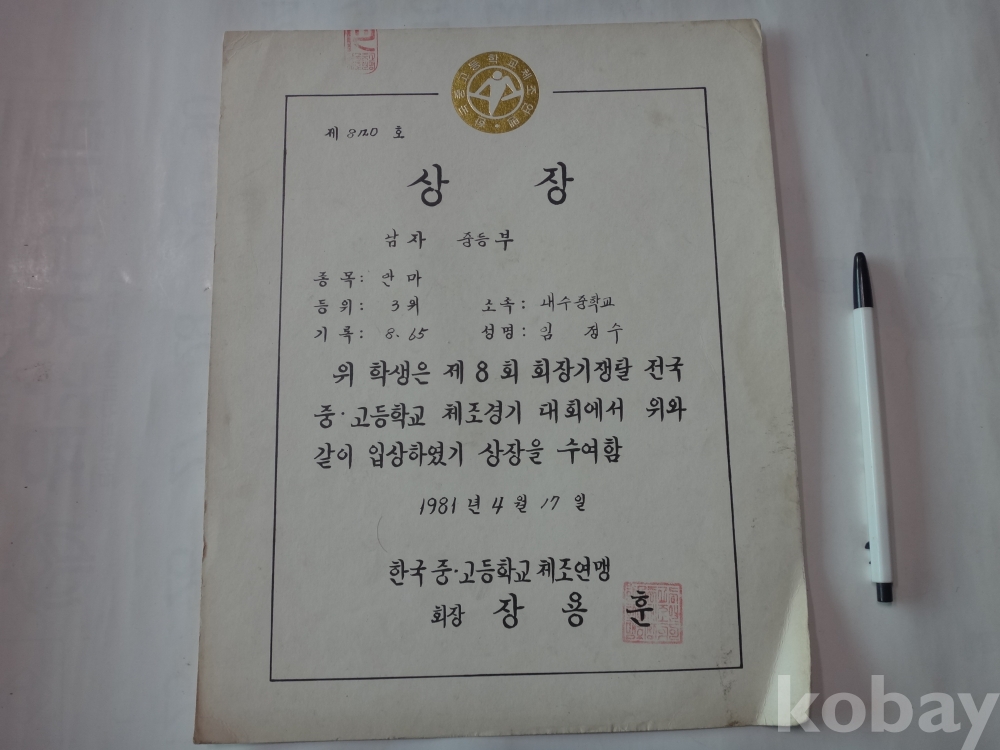 한국중고등학교체조연맹
제 8120 호
상 장
남자 중등부
종목: 안마
등위: 3위 소속: 내수중학교
기록: 8.65 성명: 임 정 수
위 학생은 제8회 회장기쟁탈 전국
중·고등학교 체조경기 대회에서 위와
같이 입상하였기 상장을 수여함
1981년 4월 17일
한국 중·고등학교 체조연맹
회장 장 용 훈
kobay